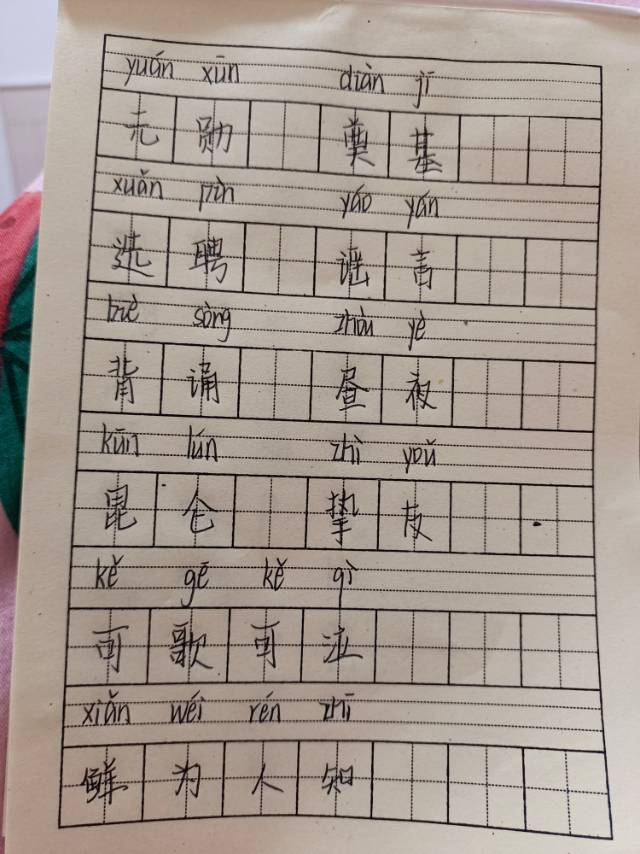 yuán xūn diàn jī
元勋 奠基
xuǎn pìn yáo yán
选聘 谣言
bèi sòng zhòu yè
背诵 昼夜
kūn lún zhì yǒu
昆仑 挚友
kě gē kě qì
可歌可泣
xiǎn wéi rén zhī
鲜为人知